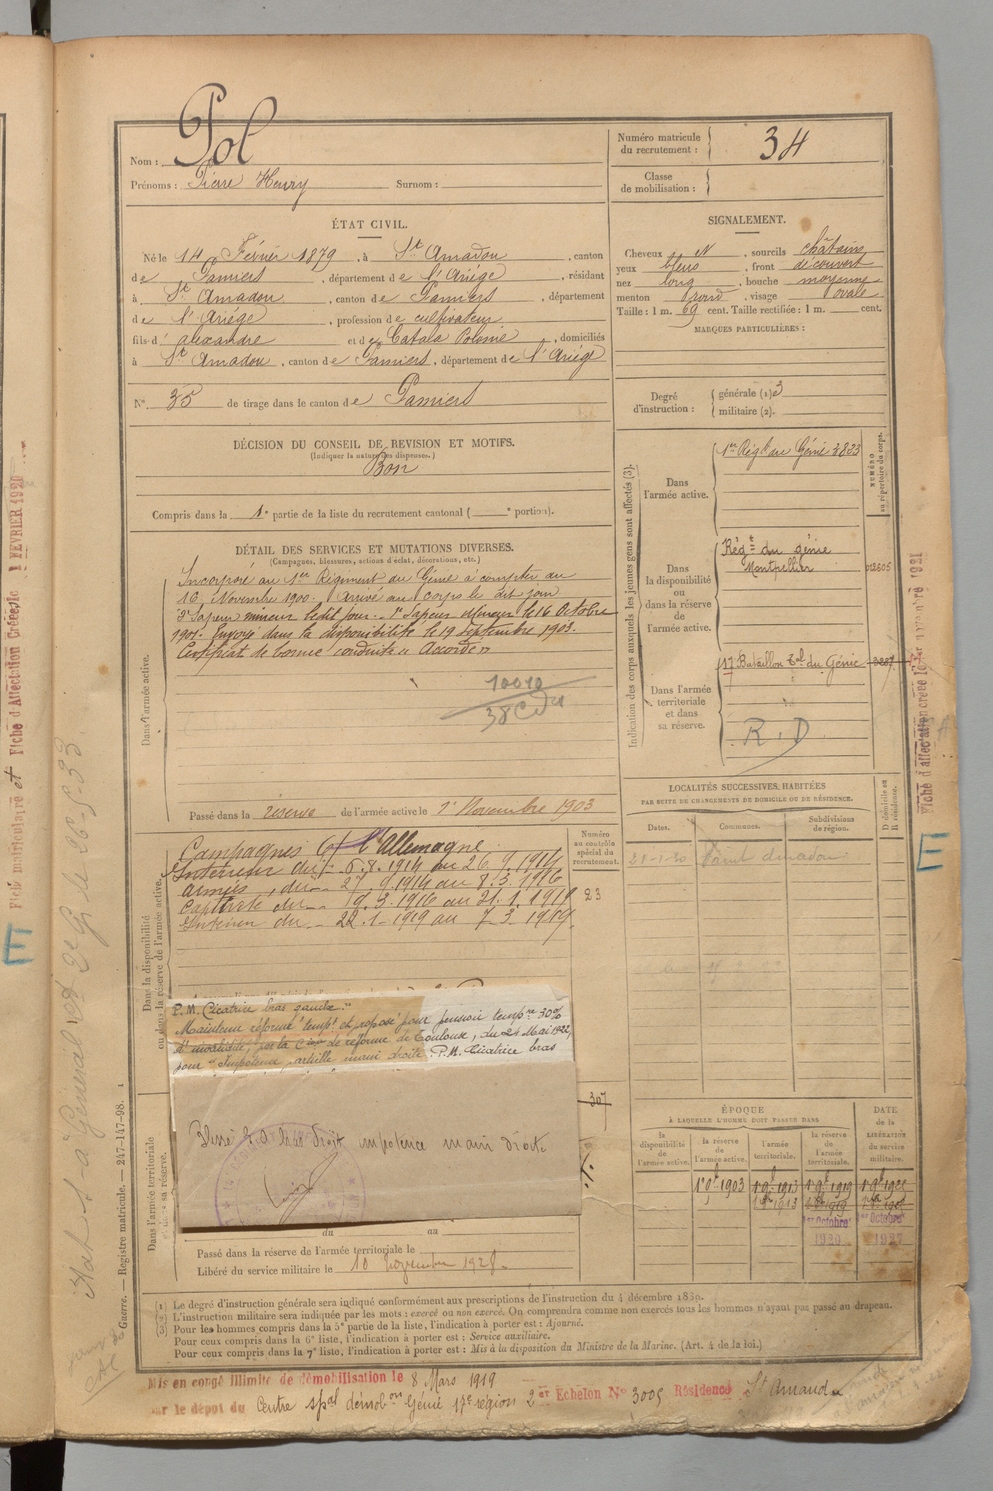 Nom : Pol
Prénoms : Pierre Henry Surnom :
Numéro matricule du recrutement : 34
Classe de mobilisation :
ÉTAT CIVIL.
Né le 14 Février 1879, à St Amadou, canton
de Pamiers, département de l'Ariège, résidant
à St Amadou, canton de Pamiers, département
de l'Ariège, profession de cultivateur
fils d' alexandre et de Catala Polonie, domiciliés
à St Amadou, canton de Pamiers, département de l'Ariège
N° 35 de tirage dans le canton de Pamiers
SIGNALEMENT.
Cheveux N, sourcils châtains
yeux bleus, front découvert
nez long, bouche moyenne
menton rond, visage ovale
Taille : 1 m. 69 cent. Taille rectifiée : 1 m. cent.
MARQUES PARTICULIÈRES :
Degré d'instruction : générale (1) 3
militaire (2).
DÉCISION DU CONSEIL DE REVISION ET MOTIFS.
(Indiquer la nature des dispenses.)
Bon
Compris dans la 1e partie de la liste du recrutement cantonal ( e portion).
DÉTAIL DES SERVICES ET MUTATIONS DIVERSES.
(Campagnes, blessures, actions d'éclat, décorations, etc.)
Dans l'armée active.
Incorporé au 1er Régiment du Génie à compter du
16 Novembre 1900. Arrivé au corps le dit jour
2e Sapeur mineur ledit jour. 1er Sapeur Mineur le 16 Octobre
1901. Envoyé dans la disponibilité le 19 Septembre 1903.
Certificat de bonne conduite "Accordé"
10010
Passé dans la réserve de l'armée active le 1er Novembre 1903
Indication des corps auxquels les jeunes gens sont affectés (3).
NUMÉRO au répertoire du corps.
Dans l'armée active.
1er Régt du Génie 3823
Dans la disponibilité ou dans la réserve de l'armée active.
Régt du génie
Montpellier 012605
Dans l'armée territoriale et dans sa réserve.
17 Bataillon Tal du Génie
R.D
LOCALITÉS SUCCESSIVES HABITÉES
PAR SUITE DE CHANGEMENTS DE DOMICILE OU DE RÉSIDENCE.
Dates. Communes. Subdivisions de région. D domicile ou R résidence.
21-1-30 Saint Amadou
Dans la disponibilité ou dans la réserve de l'armée active.
Numéro au contrôle spécial du recrutement.
Campagnes Ct l'Allemagne
Intérieur du 6.8.1914 au 26.9.1914
armées, du 27.9.1914 au 8.3.1916
Captivité du 9.3.1916 au 21.1.1919
Intérieur du 22.1.1919 au 7.3.1919
23
P.M. Cicatrice bras gauche."
Maintenu réformé tempt et proposé pour pension tempre 30%
d'invalidité, par la Cion de réforme de Toulouse, du 24 Mai 1922,
pour "Impotence, partielle main droite P.M. Cicatrice bras
307
Blessé B. O bras droit impotence main droite
Dans l'armée territoriale et dans sa réserve.
du au
Passé dans la réserve de l'armée territoriale le
Libéré du service militaire le 10 novembre 1928.
ÉPOQUE
À LAQUELLE L'HOMME DOIT PASSER DANS
la disponibilité de l'armée active. la réserve de l'armée active. l'armée territoriale. la réserve de l'armée territoriale.
DATE de la LIBÉRATION du service militaire.
1er 9bre 1903 1er 9bre 1913 1er 9bre 1919
1er Octobre 1er Octobre
1920 1927
(1) Le degré d'instruction générale sera indiqué conformément aux prescriptions de l'instruction du 4 décembre 1889.
(2) L'instruction militaire sera indiquée par les mots : exercé ou non exercé. On comprendra comme non exercés tous les hommes n'ayant pas passé au drapeau.
(3) Pour les hommes compris dans la 5e partie de la liste, l'indication à porter est : Ajourné.
Pour ceux compris dans la 6e liste, l'indication à porter est : Service auxiliaire.
Pour ceux compris dans la 7e liste, l'indication à porter est : Mis à la disposition du Ministre de la Marine. (Art. 4 de la loi.)
Mis en congé illimité de démobilisation le 8 Mars 1919
par le dépôt du Centre spal démobon Génie 17e région 2er Echelon N° 3005 Résidence St Amadou
Guerre. — Registre matricule. — 247-147-98.
Fiche matriculaire et Fiche d'Affectation Créées le 1 FEVRIER 1920
E
E